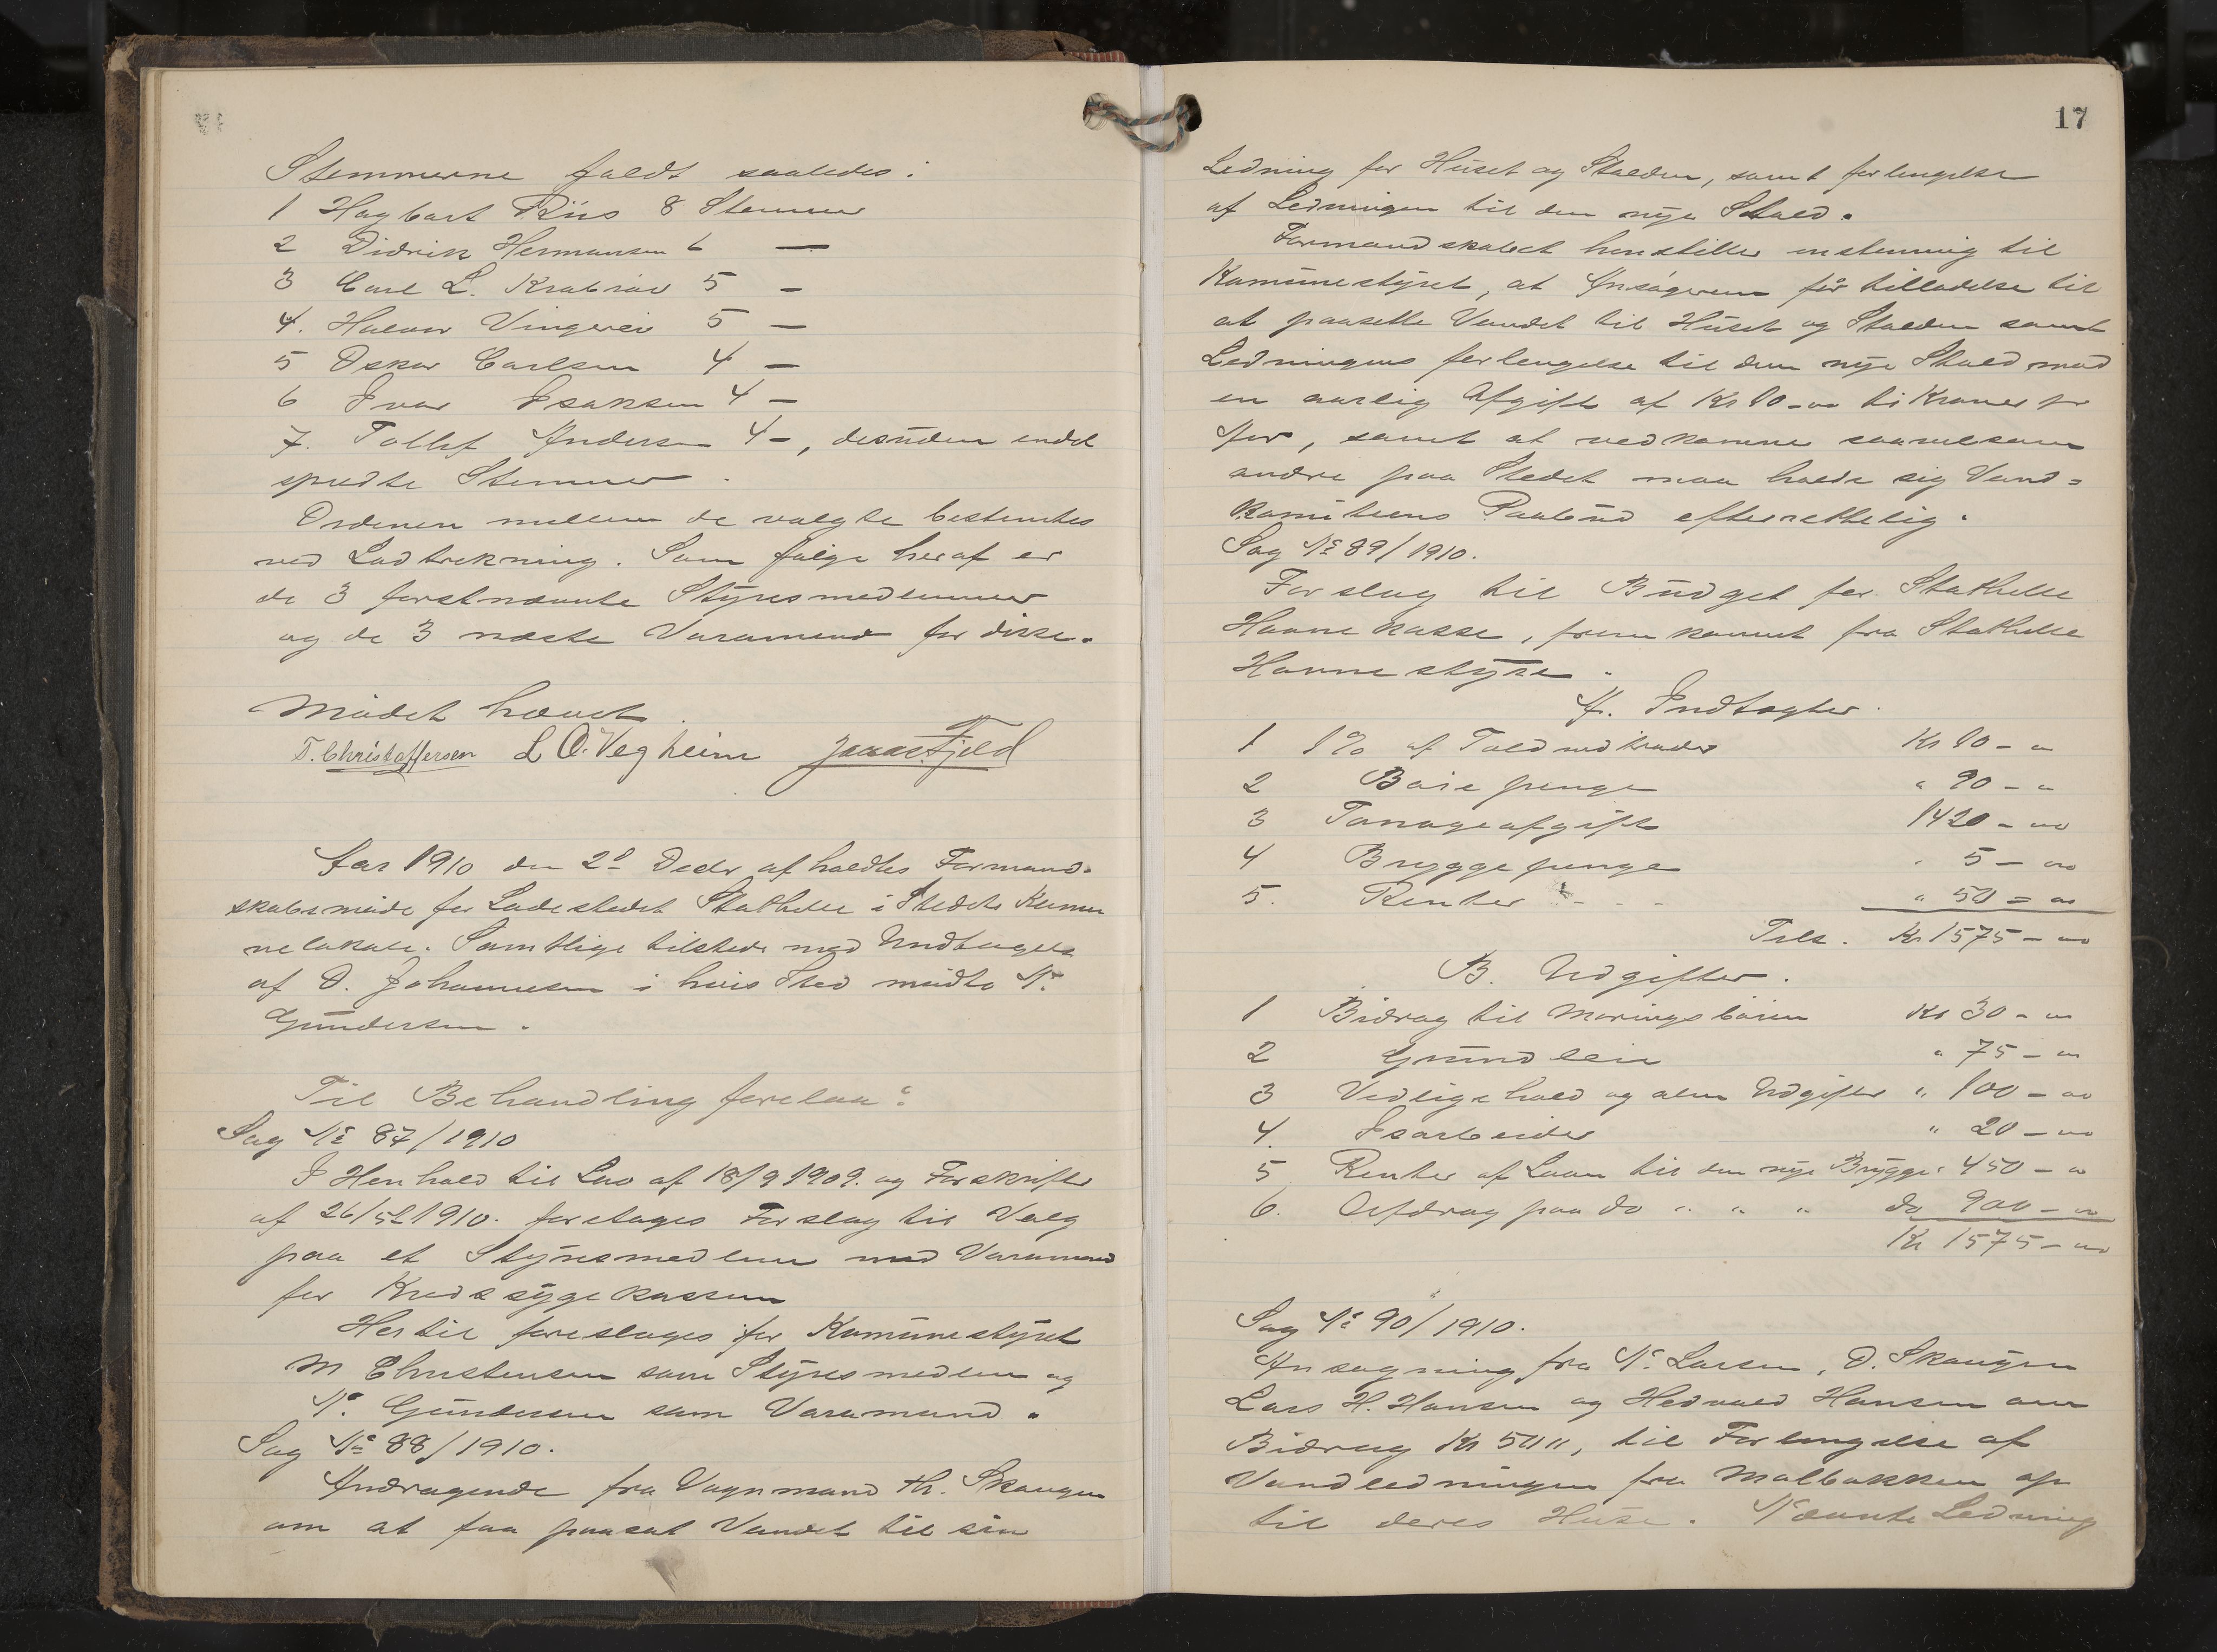 Stemmerne faldt saaledes:
1 Hagbart Riis 8 Stemmer
2 Didrik Hermansen 6 —
3 Carl L. Krabrød 5 —
4. Halvor Vingerei 5 —
5 Oskar Carlsen 4 —
6 Ivar Isaksen 4 —
7. Tollef Andersen 4 —, desuden endel
spredte Stemmer.
Ordenen mellem de valgte bestemtes
ved Lodtrekning. Som følge heraf er
de 3 førstnævnte Styresmedlemmer
og de 3 næste Varamænd for disse.
Mødet hævet.
T. Christoffersen L O. Vegheim Jonas Fjeld
Aar 1910 den 2d Decbr afholdtes Formand-
skabsmøde for Ladestedet Stathelle i Stedets Kommu
nelokale. Samtlige tilstede med Undtagelse
af O. Johannesen i hvis Sted mødte N.
Gundersen.
Til Behandling forelaa:
Sag No 87/1910
I Henhold til Lov af 18/9 1909. og Forskrifter
af 26/5 1910. foretages Forslag til Valg
paa et Styresmedlem med Varamand
for Kredssygekassen
Hertil foreslages for Komunestyret
M Christensen som Styresmedlem og
N. Gundersen som Varamand.
Sag No 88/1910.
Andragende fra Vognmand Th. Skaugen
om at faa paasat Vandet til sin
17
Ledning for Huset og Stalden, samt forlengelse
af Ledningen til den nye Stald.
Formandskabet henstiller enstemmig til
Komunestyret, at Ansøgeren får tilladelse til
at paasette Vandet til Huset og Stalden samt
Ledningens forlengelse til den nye Stald mod
en aarlig Afgift af Kr 10-00 ti Kroner pr
Aar, samt at vedkomne saavelsom
andre paa Stedet maa holde sig Vand=
Komiteens Paabud efterrettelig.
Sag No 89/1910.
Forslag til Budget for Stathelle
Havnekasse, fremkommet fra Stathelle
Havnestyre.
A. Indtægter.
1 1% af Toldindtrader Kr 10 - "
2 Bøiepenge " 90 - "
3 Tonageafgift 1420 - 00
4 Bryggepenge " 5 - 00
5. Renter - - - " 50 = 00
Tils. Kr 1575 - 00
B. Udgifter.
1 Bidrag til Moringsbøien Kr 30 - 00
2 Grundleie " 75 - 00
3 Vedligehold og alm Udgifter " 100 - 00
4. Isarbeider " 20 - 00
5 Renter af Laan til den nye Brygge " 450 - 00
6. Afdrag paa do " " " do 900 - 00
Kr 1575 - 00
Sag No 90/1910.
Ansøgning fra N. Larsen, O. Skaugen
Lars H. Hansen og Hedvald Hansen om
Bidrag Kr 50 ", til Forlengelse af
Vandledningen fra Malbakken op
til deres Huse. Nævnte Ledning